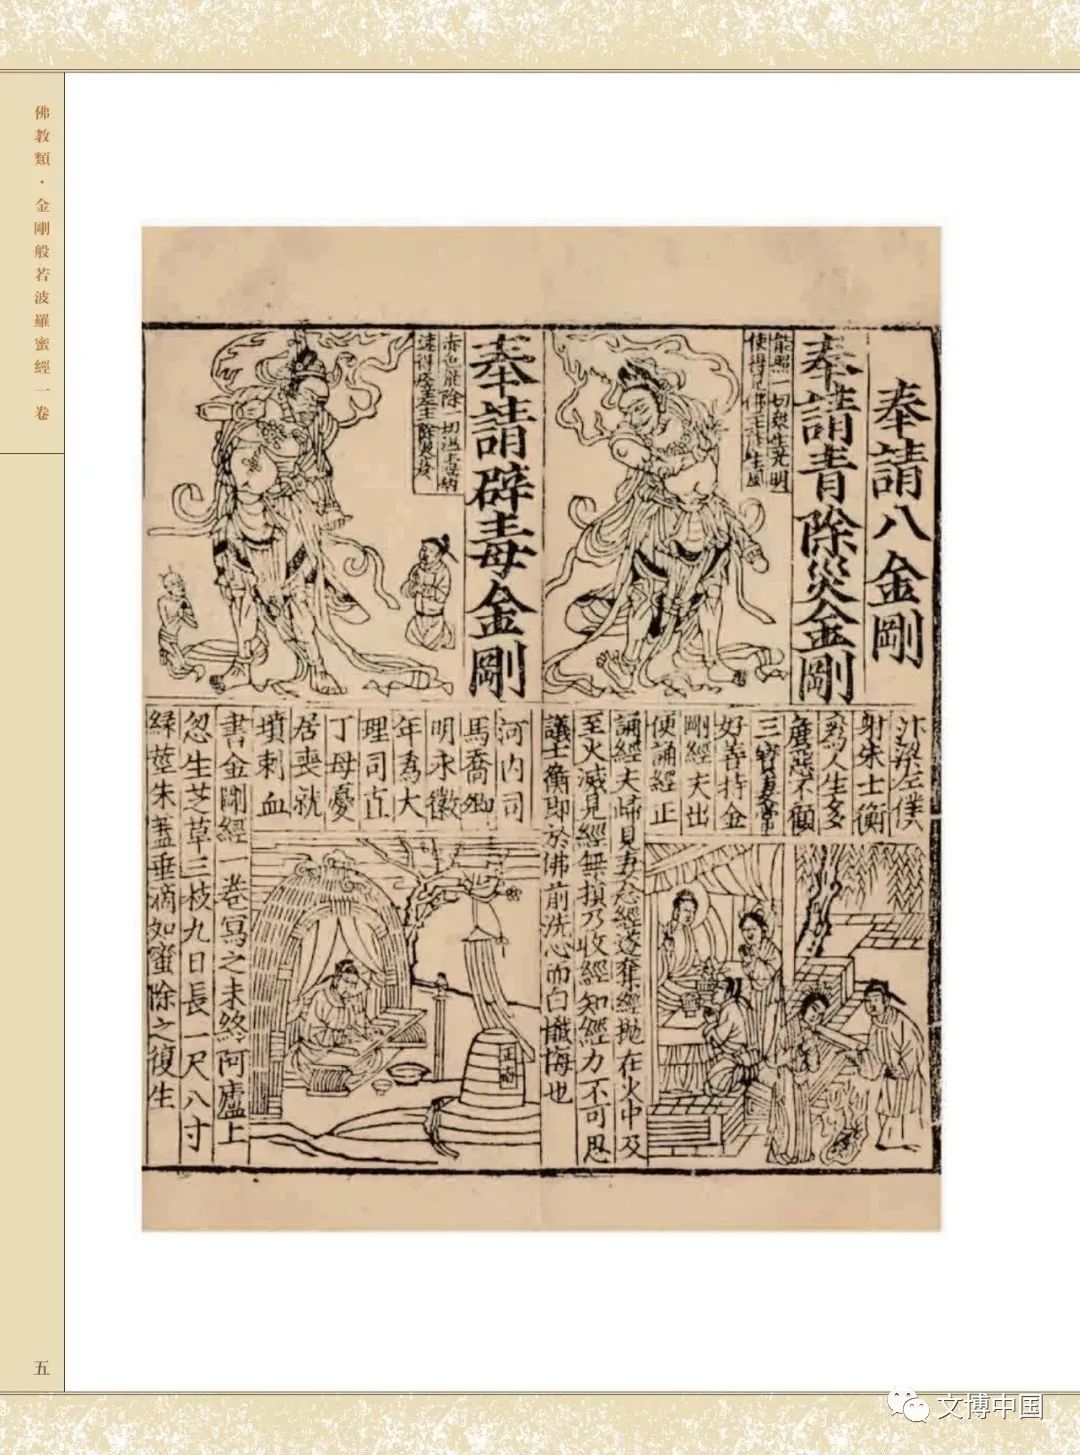 佛教類·金剛般若波羅蜜經一卷
奉請八金剛
奉請青除災金剛
能照一切衆生光明
使得見佛
奉請辟毒金剛
赤色能除一切温毒病
速得
汴梁左僕
射朱士衡
為人生多
麁惡不顧
三寳妻常
好善持金
剛經夫出
便誦經正
誦經夫歸見妻念經遂奪經拋在火中及
至火滅見經無損乃收經知經力不可思
議士衡即於佛前洗心而白懺悔也
河内司
馬喬卿
明永徽
年為大
理司直
丁母憂
居喪就
墳刺血
書金剛經一卷寫之未終阿廬上
忽生芝草三枝九日長一尺八寸
緑莖朱蓋垂滴如蜜除之復生
五
文博中国